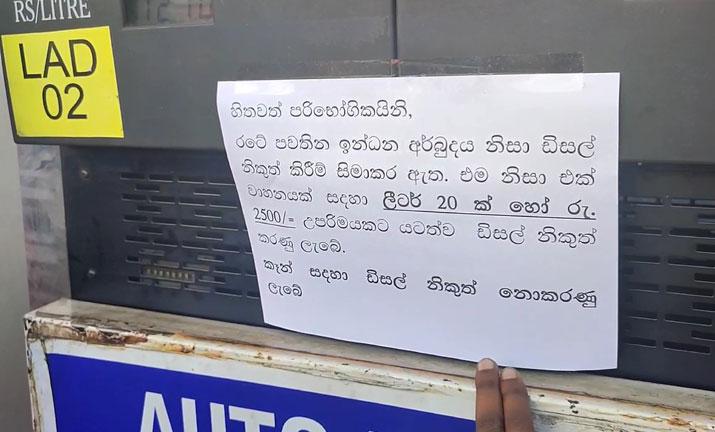 RS/LITRE
LAD
02
හිතවත් පරිභෝගිකයිනි,
රටේ පවතින ඉන්ධන අර්බුදය නිසා ඩීසල්
නිකුත් කිරීම් සීමාකර ඇත. එම නිසා එක්
වාහනයක් සදහා ලීටර් 20 ක් හෝ රු.
2500/= උපරිමයකට යටත්ව ඩිසල් නිකුත්
කරණු ලැබේ.
කෑන් සදහා ඩිසල් නිකුත් නොකරණු
ලැබේ
AUTO